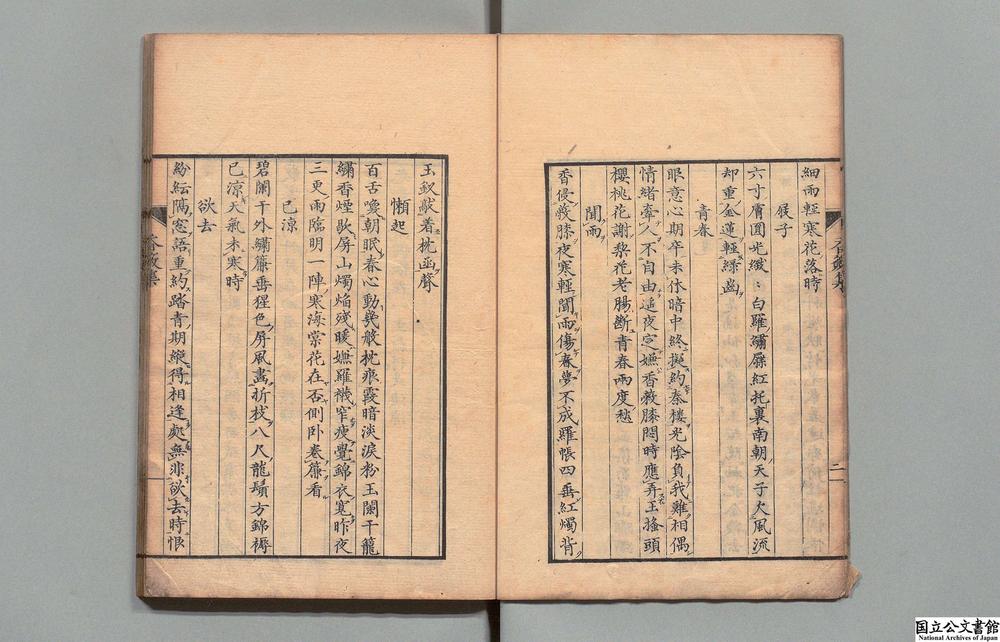 細雨輕寒花落時
屐子
六寸膚圓光緻〻白羅繡屧紅托裏南朝天子欠風流
却重金蓮輕綠齒
青春
眼意心期卒未休暗中終擬約秦樓光陰負我難相偶
情緒牽人不自由遥夜定嫌香蔽膝悶時應弄玉搔頭
櫻桃花謝梨花老腸斷青春兩度愁
聞雨
香侵蔽膝夜寒輕聞雨傷春夢不成羅帳四垂紅燭背
二
玉釵敲着枕函聲
懶起
百舌喚朝眠春心動幾般枕痕霞暗淡淚粉玉闌干籠
繡香煙歇屏山燭焰殘暖嫌羅襪窄瘦覺錦衣寛昨夜
三更雨臨明一陣寒海棠花在否側卧卷簾看
已凉
碧闌干外繡簾垂猩色屏風畫折枝八尺龍鬚方錦褥
已凉天氣未寒時
欲去
紛紜隔窓語重約踏青期縱得相逢處無非欲去時恨
国立公文書館
National Archives of Japan